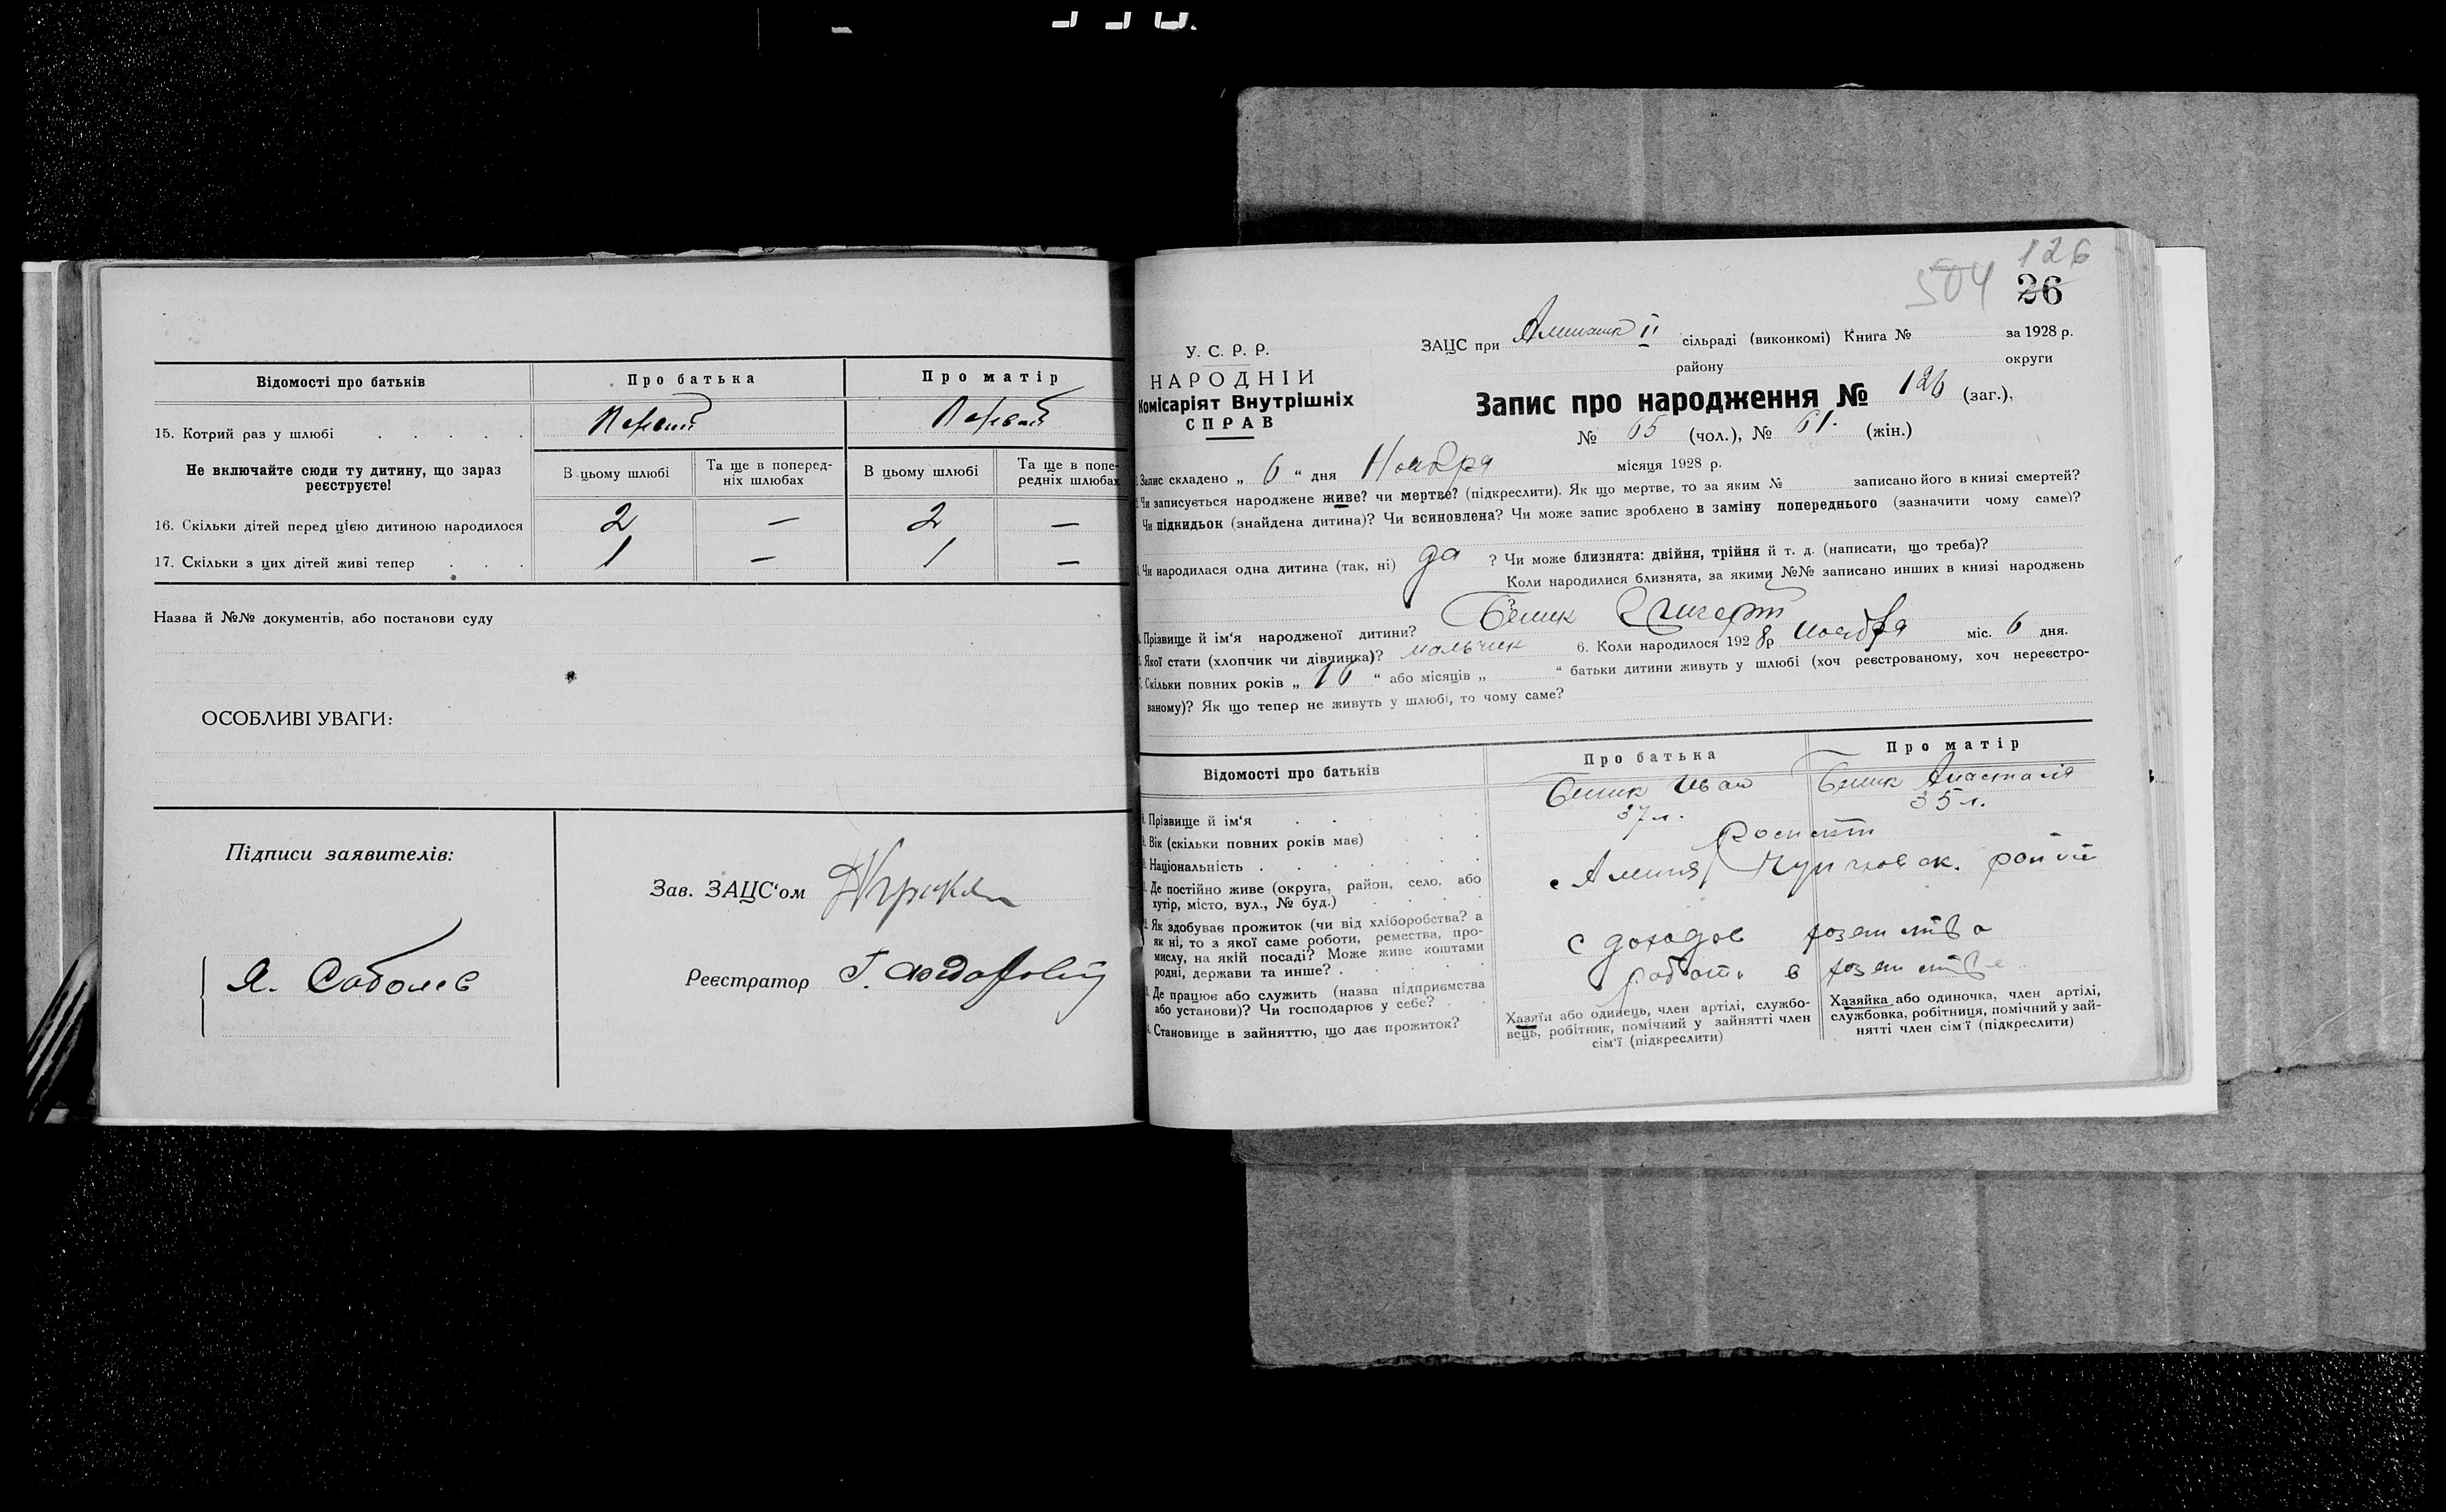 Відомості про батьків
Про батька
Про матір
15. Котрий раз у шлюбі
Первый
Первый
Не включайте сюди ту дитину, що зараз
реєструєте!
В цьому шлюбі
Та ще в поперед-
ніх шлюбах
В цьому шлюбі
Та ще в попе-
редніх шлюбах
16. Скільки дітей перед цією дитиною народилося
2 — 2 —
17. Скільки з цих дітей живі тепер
1 — 1 —
Назва й №№ документів, або постанови суду
ОСОБЛИВІ УВАГИ:
Підписи заявителів:
Я. Соболев
Зав. ЗАЦС'ом
Реєстратор
126
504 26
У. С. Р. Р.
НАРОДНІЙ
Комісаріят Внутрішніх
СПРАВ
ЗАЦС при II сільраді (виконкомі) Книга № за 1928 р.
району округи
Запис про народження № 126 (заг.),
№ 65 (чол.), № 61. (жін.)
Запис складено „ 6 “ дня Ноября місяця 1928 р.
Чи записується народжене живе? чи мертве? (підкреслити). Як що мертве, то за яким № записано його в книзі смертей?
Чи підкидьок (знайдена дитина)? Чи всиновлена? Чи може запис зроблено в заміну попереднього (зазначити чому саме)?
Чи народилася одна дитина (так, ні) да ? Чи може близнята: двійня, трійня й т. д. (написати, що треба)?
Коли народилися близнята, за якими №№ записано инших в книзі народжень
Прізвище й ім'я народженої дитини?
Якої стати (хлопчик чи дівчинка)? мальчик 6. Коли народилося 1928 р ноября міс. 6 дня.
Скільки повних років „ 16 “ або місяців „ “ батьки дитини живуть у шлюбі (хоч реєстрованому, хоч нереєстро-
ваному)? Як що тепер не живуть у шлюбі, то чому саме?
Відомості про батьків
Про батька
Про матір
Прізвище й ім'я
Иван
Анастасія
Вік (скільки повних років має)
37 л.
35 л.
Національність
Де постійно живе (округа, район, село, або
хутір, місто, вул., № буд.)
Як здобуває прожиток (чи від хліборобства? а
як ні, то з якої саме роботи, ремества, про-
мислу, на якій посаді? Може живе коштами
родні, держави та инше?
с доходов хозяйства
Де працює або служить (назва підприємства
або установи)? Чи господарює у себе?
в хозяйстве
Становище в зайняттю, що дає прожиток?
Хазяїн або одинець, член артілі, службо-
вець, робітник, помічний у зайнятті член
сім'ї (підкреслити)
Хазяйка або одиночка, член артілі,
службовка, робітниця, помічний у зай-
нятті член сім'ї (підкреслити)